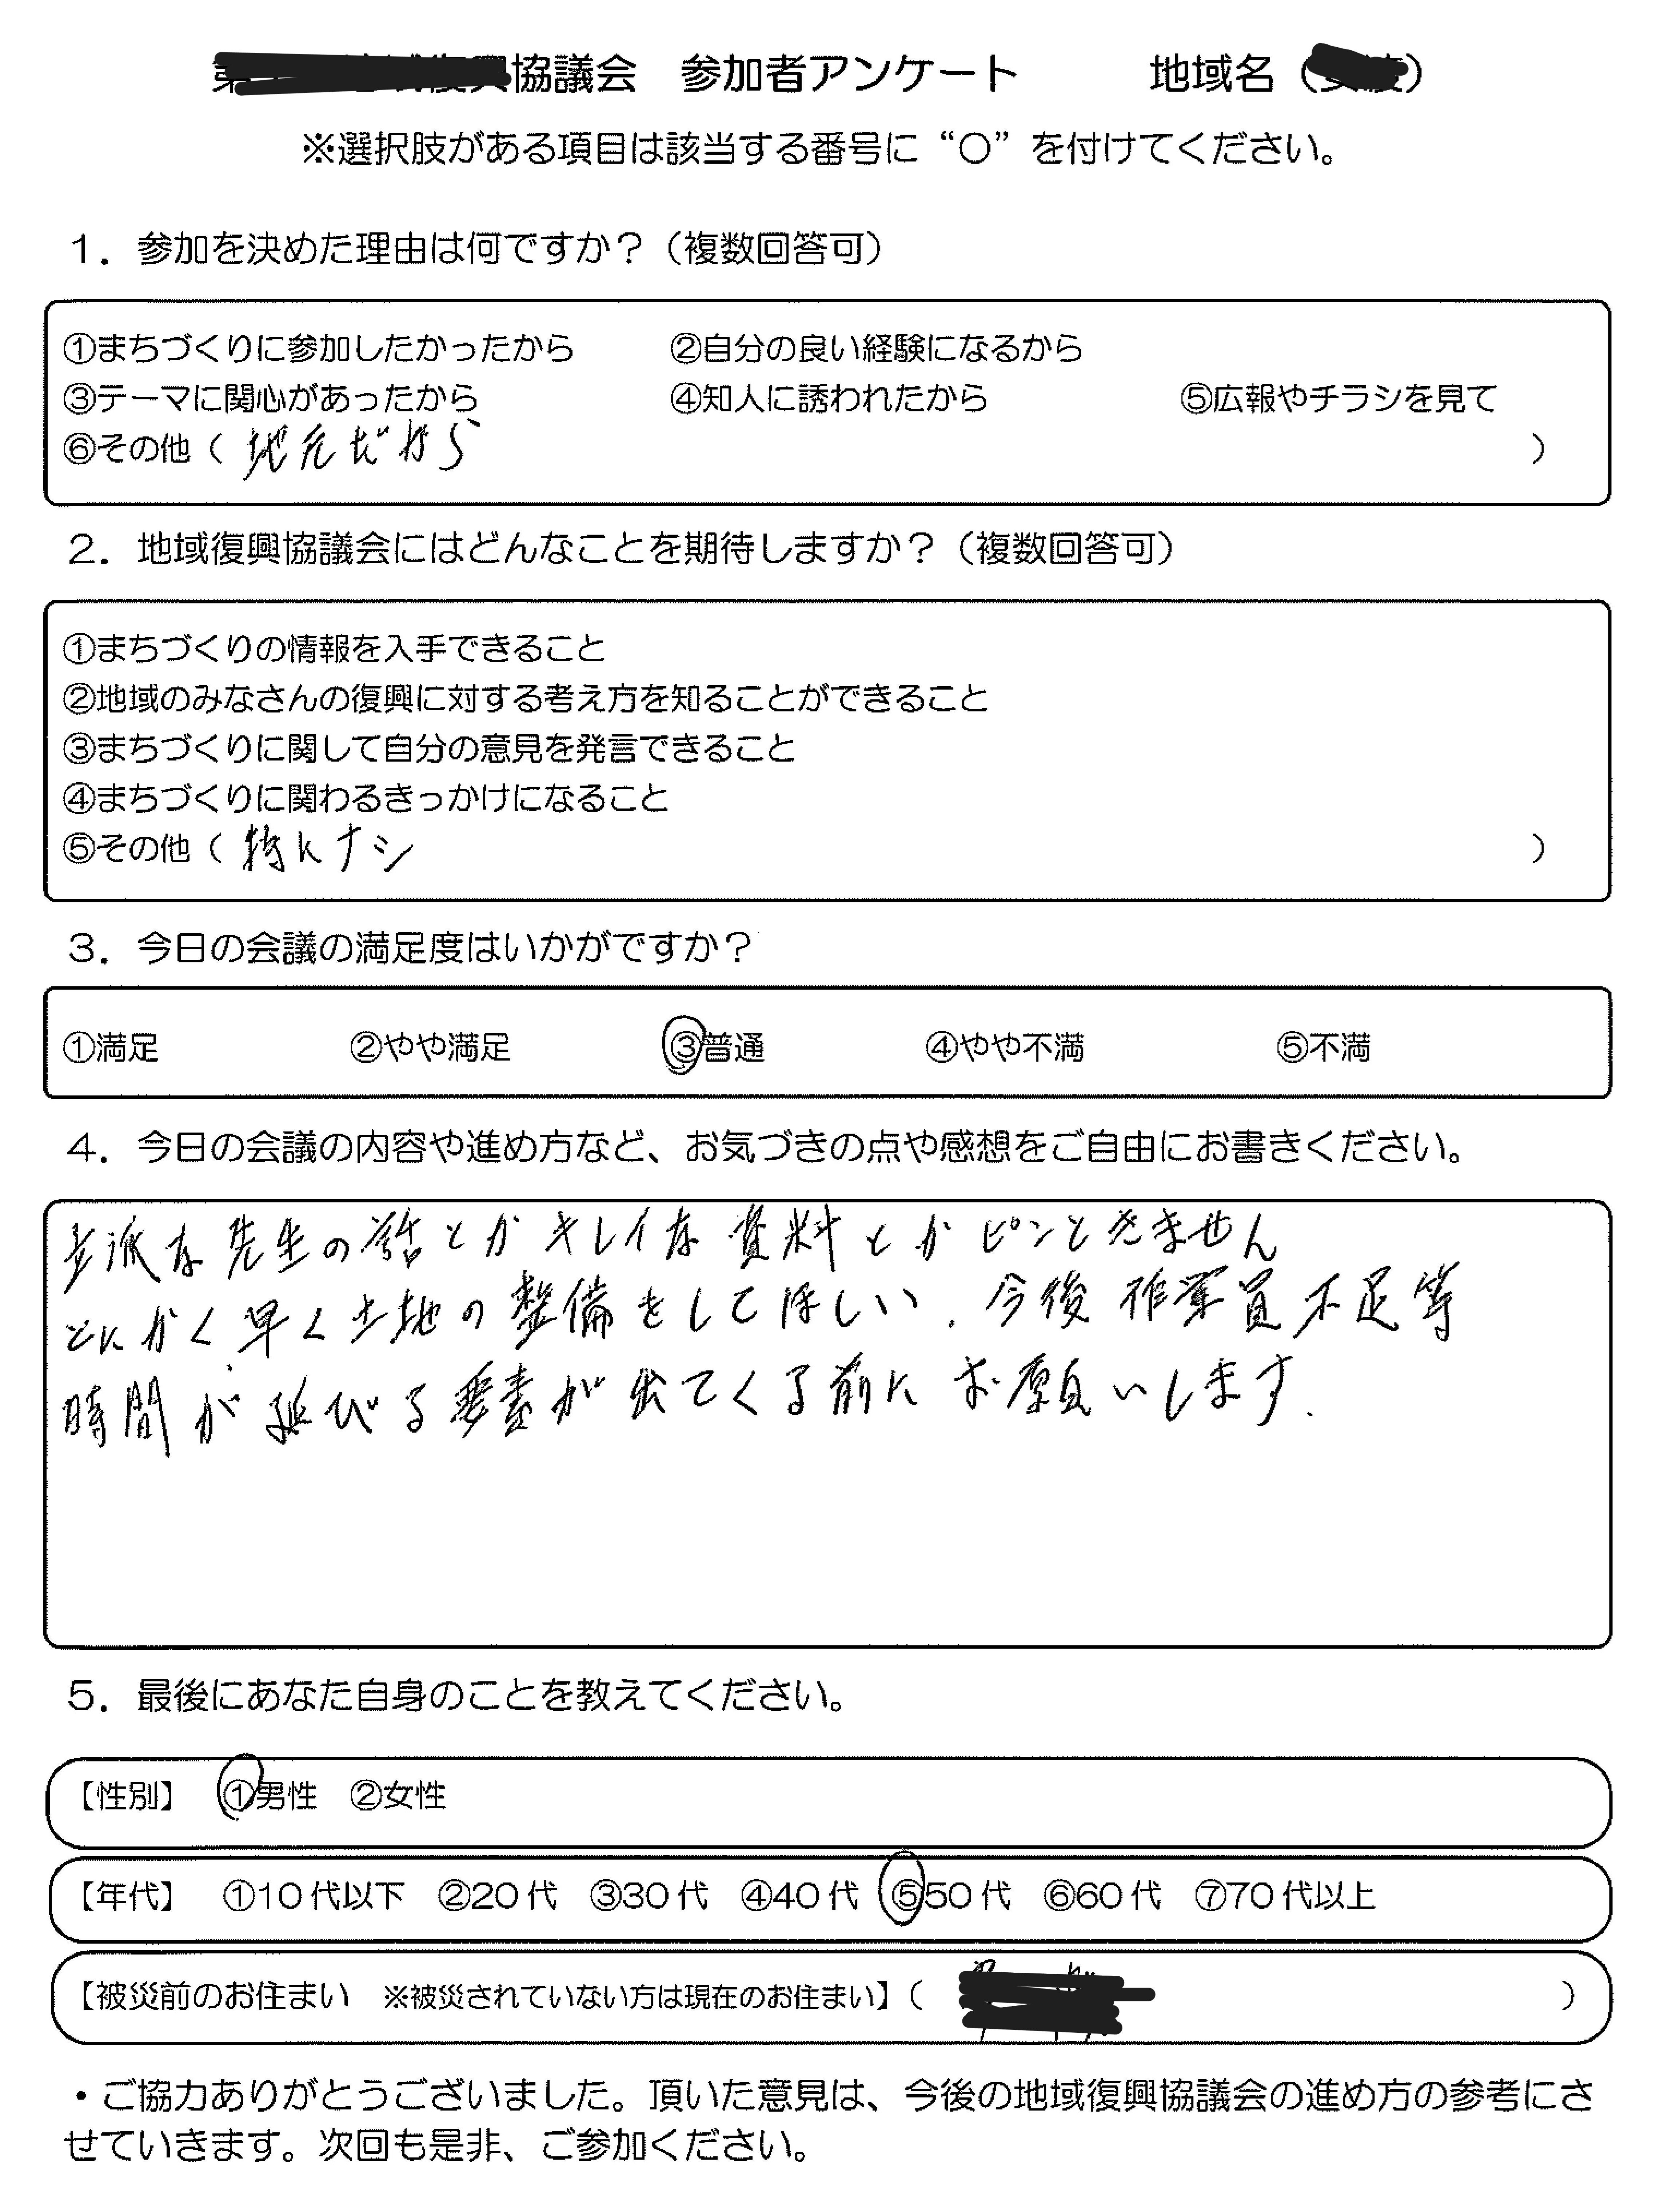 協議会　参加者アンケート　　　地域名（　　）
※選択肢がある項目は該当する番号に“○”を付けてください。
１．参加を決めた理由は何ですか？（複数回答可）
①まちづくりに参加したかったから　　　②自分の良い経験になるから
③テーマに関心があったから　　　④知人に誘われたから　　　⑤広報やチラシを見て
⑥その他（ 地元だから ）
２．地域復興協議会にはどんなことを期待しますか？（複数回答可）
①まちづくりの情報を入手できること
②地域のみなさんの復興に対する考え方を知ることができること
③まちづくりに関して自分の意見を発言できること
④まちづくりに関わるきっかけになること
⑤その他（ 特にナシ ）
３．今日の会議の満足度はいかがですか？
①満足　　　②やや満足　　　③普通　　　④やや不満　　　⑤不満
４．今日の会議の内容や進め方など、お気づきの点や感想をご自由にお書きください。
立派な先生の話とかキレイな資料とかピンときません
とにかく早く土地の整備をしてほしい．今後作業員不足等
時間が延びる要素が出てくる前にお願いします．
５．最後にあなた自身のことを教えてください。
【性別】　①男性　②女性
【年代】　①10代以下　②20代　③30代　④40代　⑤50代　⑥60代　⑦70代以上
【被災前のお住まい　※被災されていない方は現在のお住まい】（　　　）
・ご協力ありがとうございました。頂いた意見は、今後の地域復興協議会の進め方の参考にさ
せていきます。次回も是非、ご参加ください。